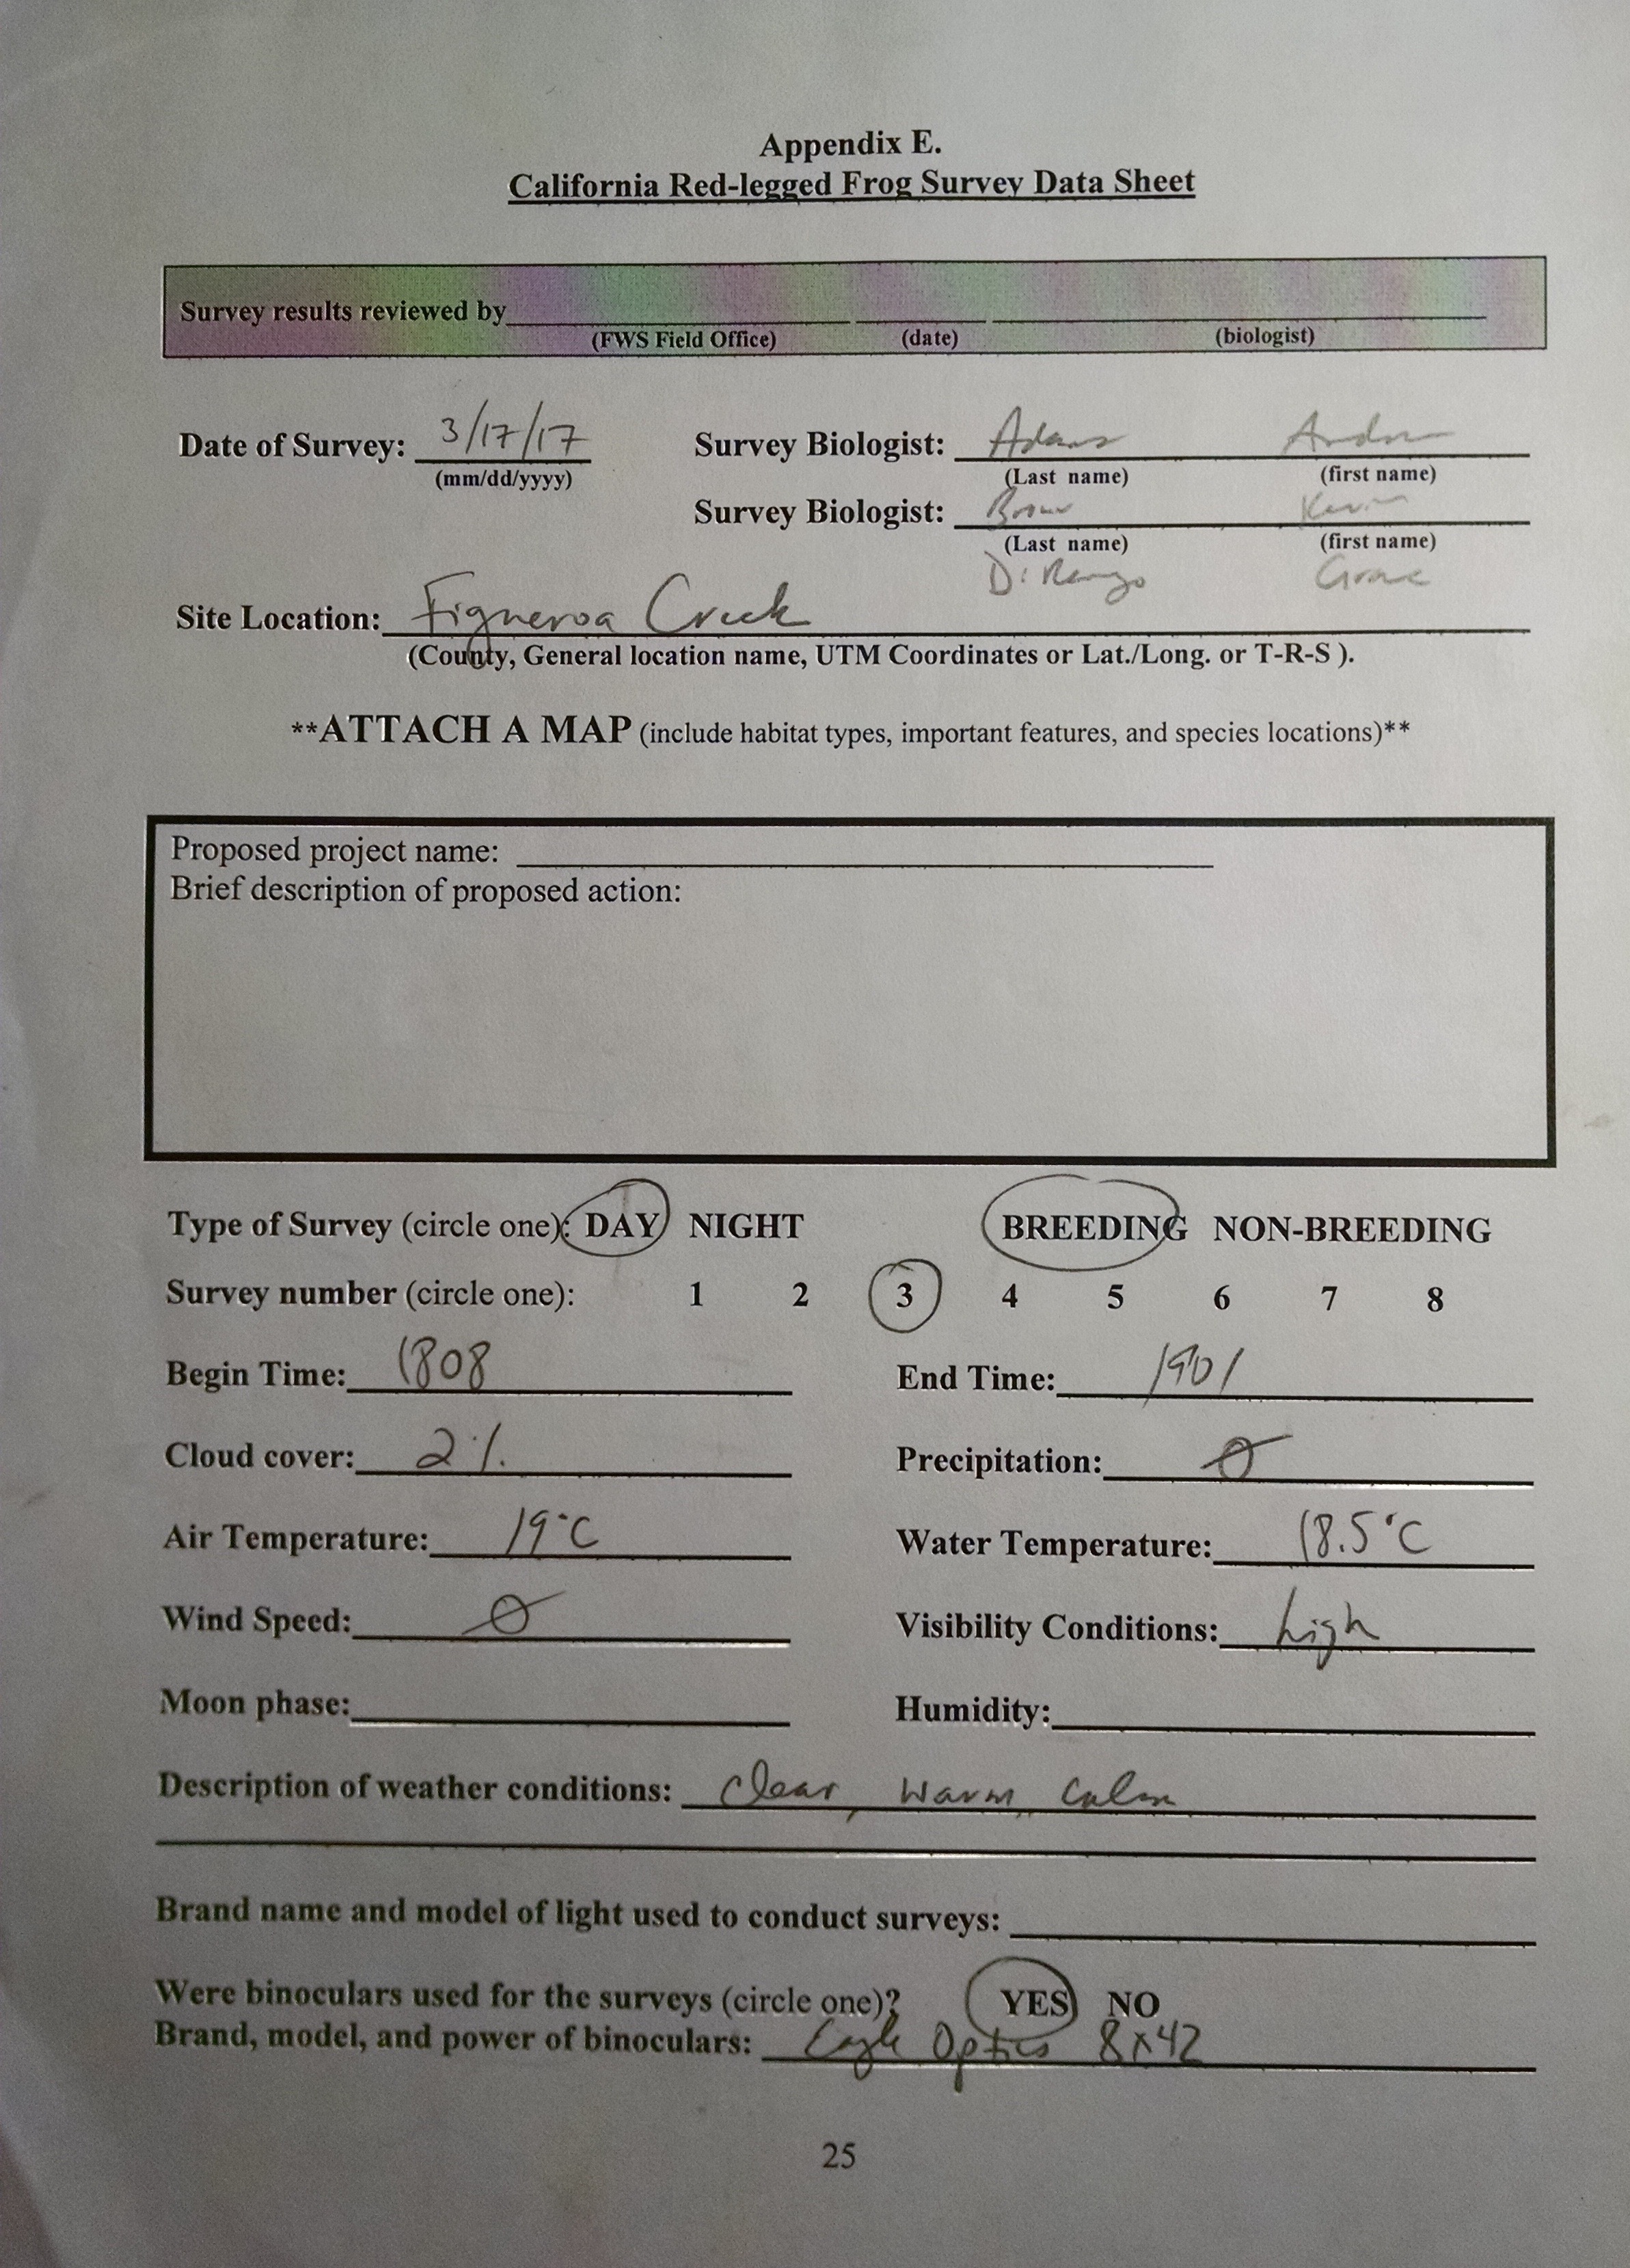 Appendix E.
California Red-legged Frog Survey Data Sheet
Survey results reviewed by
(FWS Field Office) (date) (biologist)
Date of Survey: 3/17/17 Survey Biologist: Adams
(mm/dd/yyyy) (Last name) (first name)
Survey Biologist: Brown Kevin
(Last name) (first name)
Grace
Site Location: Figueroa Creek
(County, General location name, UTM Coordinates or Lat./Long. or T-R-S ).
**ATTACH A MAP (include habitat types, important features, and species locations)**
Proposed project name:
Brief description of proposed action:
Type of Survey (circle one): DAY NIGHT BREEDING NON-BREEDING
Survey number (circle one): 1 2 3 4 5 6 7 8
Begin Time: 1808 End Time: 1901
Cloud cover: 2% Precipitation: 0
Air Temperature: 19°C Water Temperature: 18.5°C
Wind Speed: 0 Visibility Conditions: high
Moon phase: Humidity:
Description of weather conditions: Clear, warm, calm
Brand name and model of light used to conduct surveys:
Were binoculars used for the surveys (circle one)? YES NO
Brand, model, and power of binoculars: Eagle Optics 8x42
25